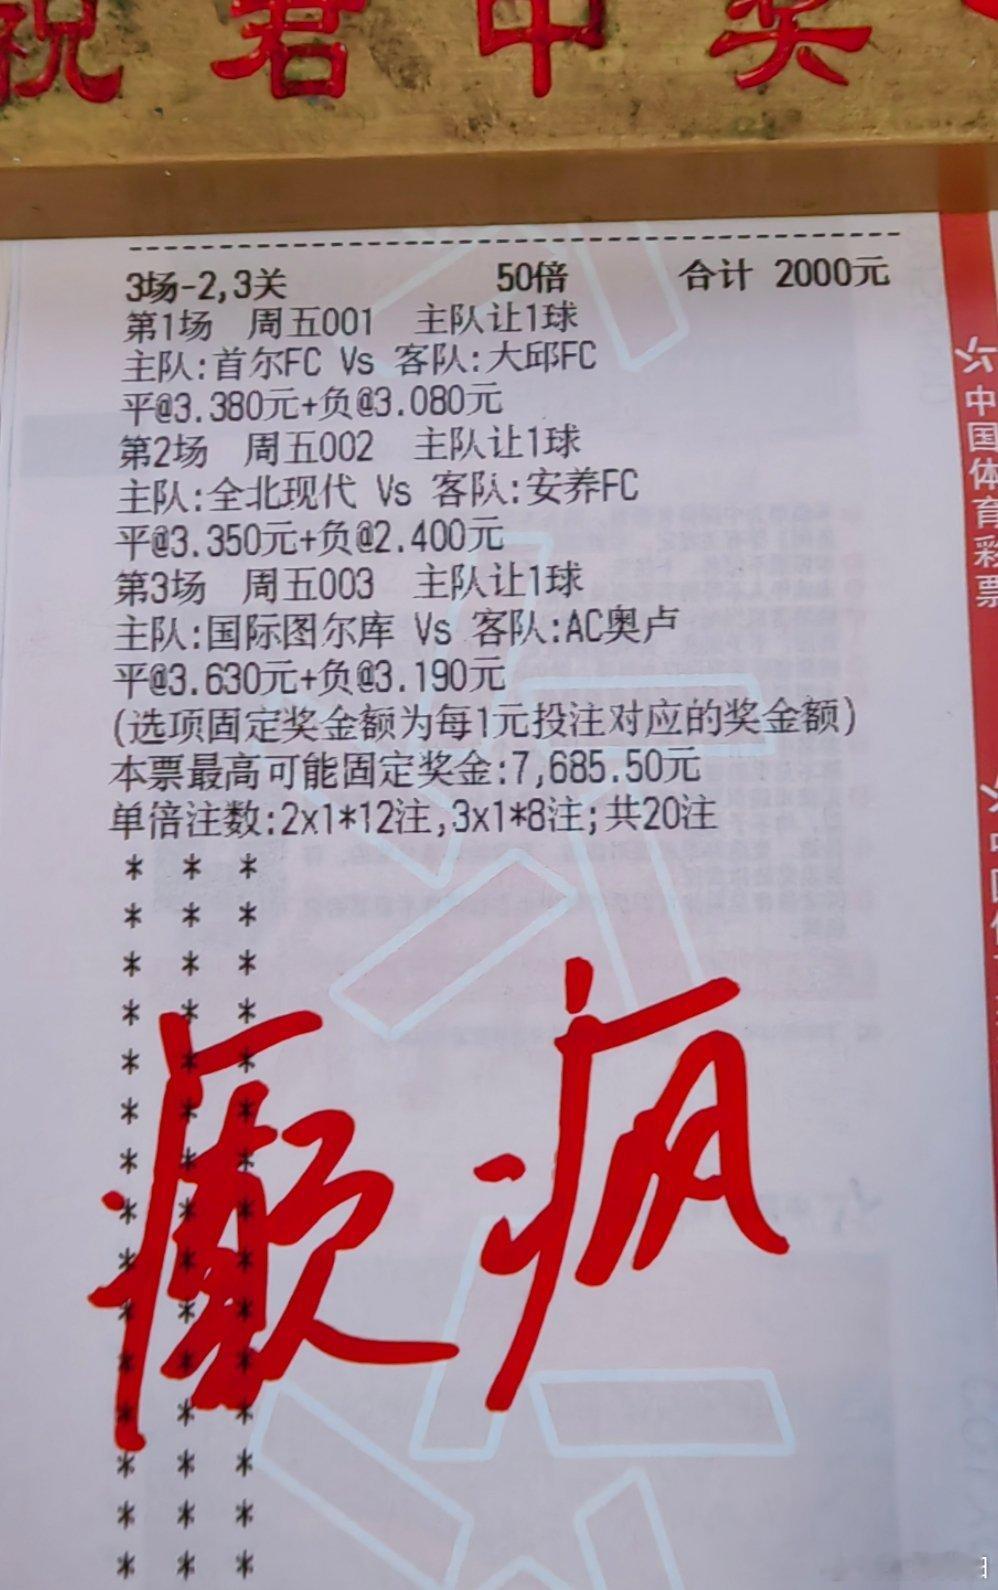 祝君中奖
3场-2,3关 50倍 合计 2000元
第1场 周五001 主队让1球
主队:首尔FC Vs 客队:大邱FC
平@3.380元+负@3.080元
第2场 周五002 主队让1球
主队:全北现代 Vs 客队:安养FC
平@3.350元+负@2.400元
第3场 周五003 主队让1球
主队:国际图尔库 Vs 客队:AC奥卢
平@3.630元+负@3.190元
(选项固定奖金额为每1元投注对应的奖金额)
本票最高可能固定奖金:7,685.50元
单倍注数:2x1*12注,3x1*8注;共20注
* * *
* * *
* * *
* * *
* * *
* * *
* * *
* * *
* * *
* * *
* * *
* * *
* * *
* * *
* * *
癫疯
中国体育彩票